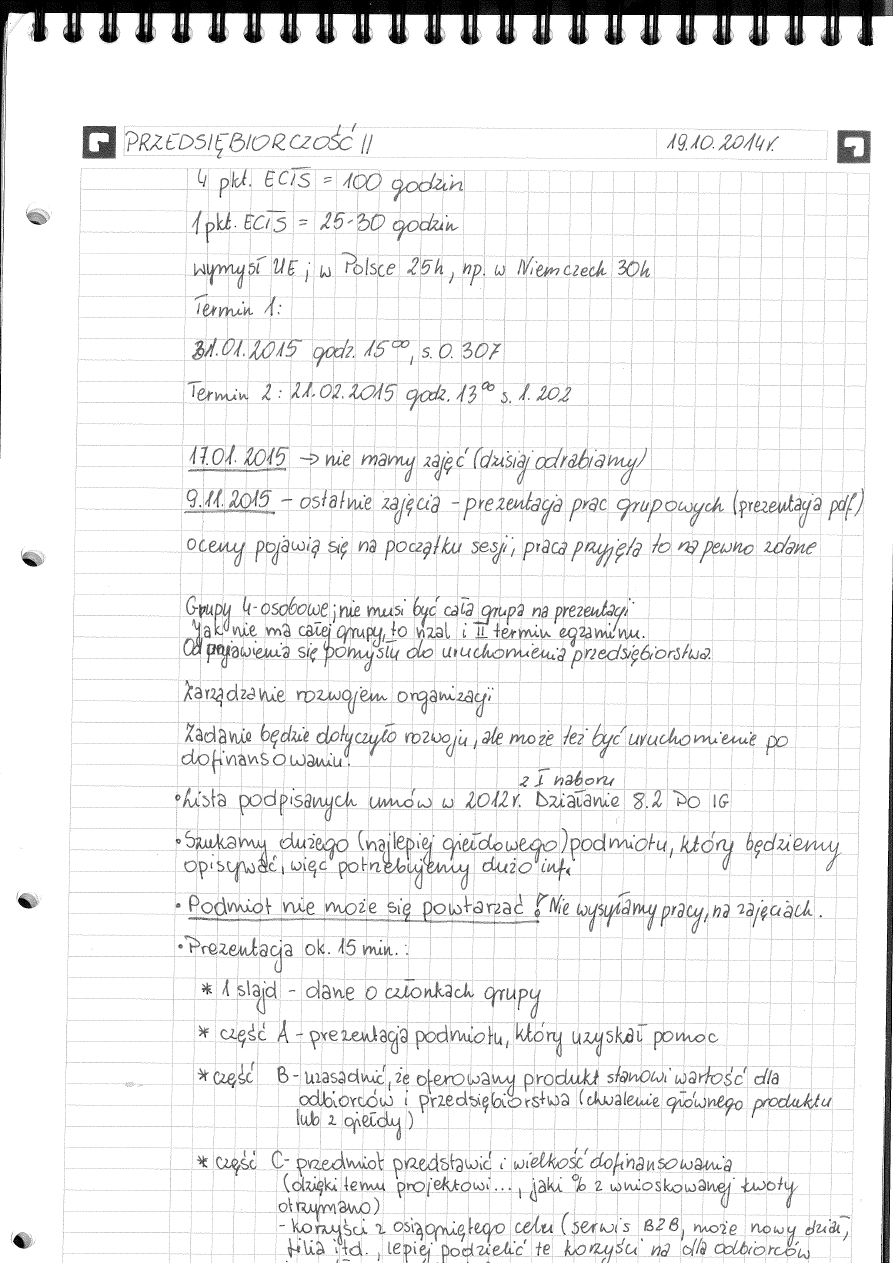 PRZEDSIĘBIORCZOŚĆ II 19.10.2014r.
4 pkt. ECTS = 100 godzin
1 pkt. ECTS = 25-30 godzin
wymysł UE; w Polsce 25h, np. w Niemczech 30h
Termin 1:
31.01.2015 godz. 15⁰⁰, s. 0.307
Termin 2: 21.02.2015 godz. 13⁰⁰ s. 1.202
17.01.2015 → nie mamy zajęć (dzisiaj odrabiamy)
9.11.2015 – ostatnie zajęcia – prezentacja prac grupowych (prezentacja pdf)
oceny pojawią się na początku sesji, praca przyjęta to na pewno zdane
Grupy 4-osobowe; nie musi być cała grupa na prezentacji
Jak nie ma całej grupy, to nzal i II termin egzaminu.
Od pojawienia się pomysłu do uruchomienia przedsiębiorstwa.
Zarządzanie rozwojem organizacji
Zadanie będzie dotyczyło rozwoju, ale może też być uruchomienie po
dofinansowaniu.
z I naboru
• Lista podpisanych umów w 2012r. Działanie 8.2 PO IG
• Szukamy dużego (najlepiej giełdowego) podmiotu, który będziemy
opisywać, więc potrzebujemy dużo inf.
• Podmiot nie może się powtarzać! Nie wysyłamy pracy, na zajęciach.
• Prezentacja ok. 15 min.:
* 1 slajd – dane o członkach grupy
* część A – prezentacja podmiotu, który uzyskał pomoc
* część B – uzasadnić, że oferowany produkt stanowi wartość dla
odbiorców i przedsiębiorstwa (chwalenie głównego produktu
lub z giełdy)
* część C – przedmiot przedstawić i wielkość dofinansowania
(dzięki temu projektowi..., jaki % z wnioskowanej kwoty
otrzymano)
- korzyści z osiągniętego celu (serwis B2B, może nowy dział,
filia itd., lepiej podzielić te korzyści na dla odbiorców